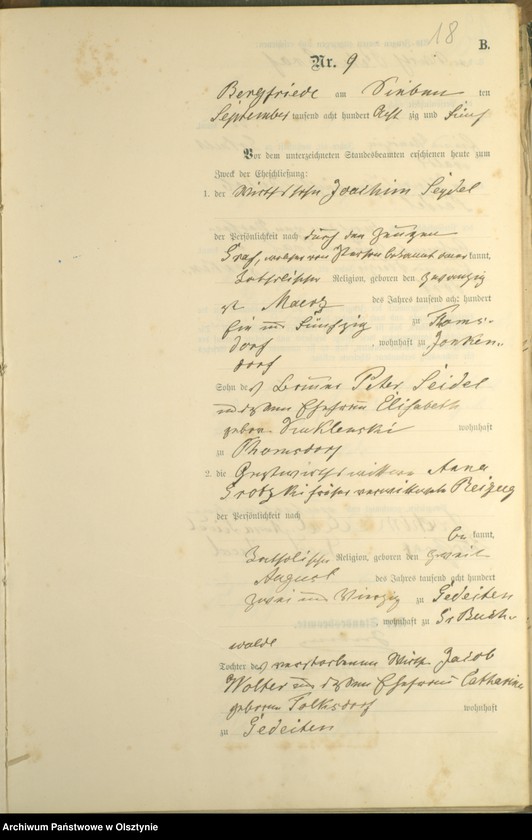 18
B.
Nr. 9
Bergfriede am Sieben ten
September tausend acht hundert Acht zig und Fünf
Vor dem unterzeichneten Standesbeamten erschienen heute zum
Zweck der Eheschließung:
1. der Wirthssohn Joachim Seydel
der Persönlichkeit nach durch den Zeugen
Graf, welcher von Person bekannt aner kannt,
katholischer Religion, geboren den
Maerz des Jahres tausend acht hundert
Ein und Fünfzig zu Thoms-
dorf, wohnhaft zu Jonken-
dorf
Sohn des Peter Seidel
und dessen Ehefrau Elisabeth
geboren wohnhaft
zu Thomsdorf
2. die Gastwirthswittwe Anna
Grotzki früher verwittwete
der Persönlichkeit nach
be kannt,
katholischer Religion, geboren den zweiten
August des Jahres tausend acht hundert
zwei und Vierzig zu Gedeiten
wohnhaft zu Gr Buch-
walde
Tochter des verstorbenen Wirth Jacob
Wolter und dessen Ehefrau Catharina
geboren Tolksdorf wohnhaft
zu Gedeiten
Archiwum Państwowe w Olsztynie